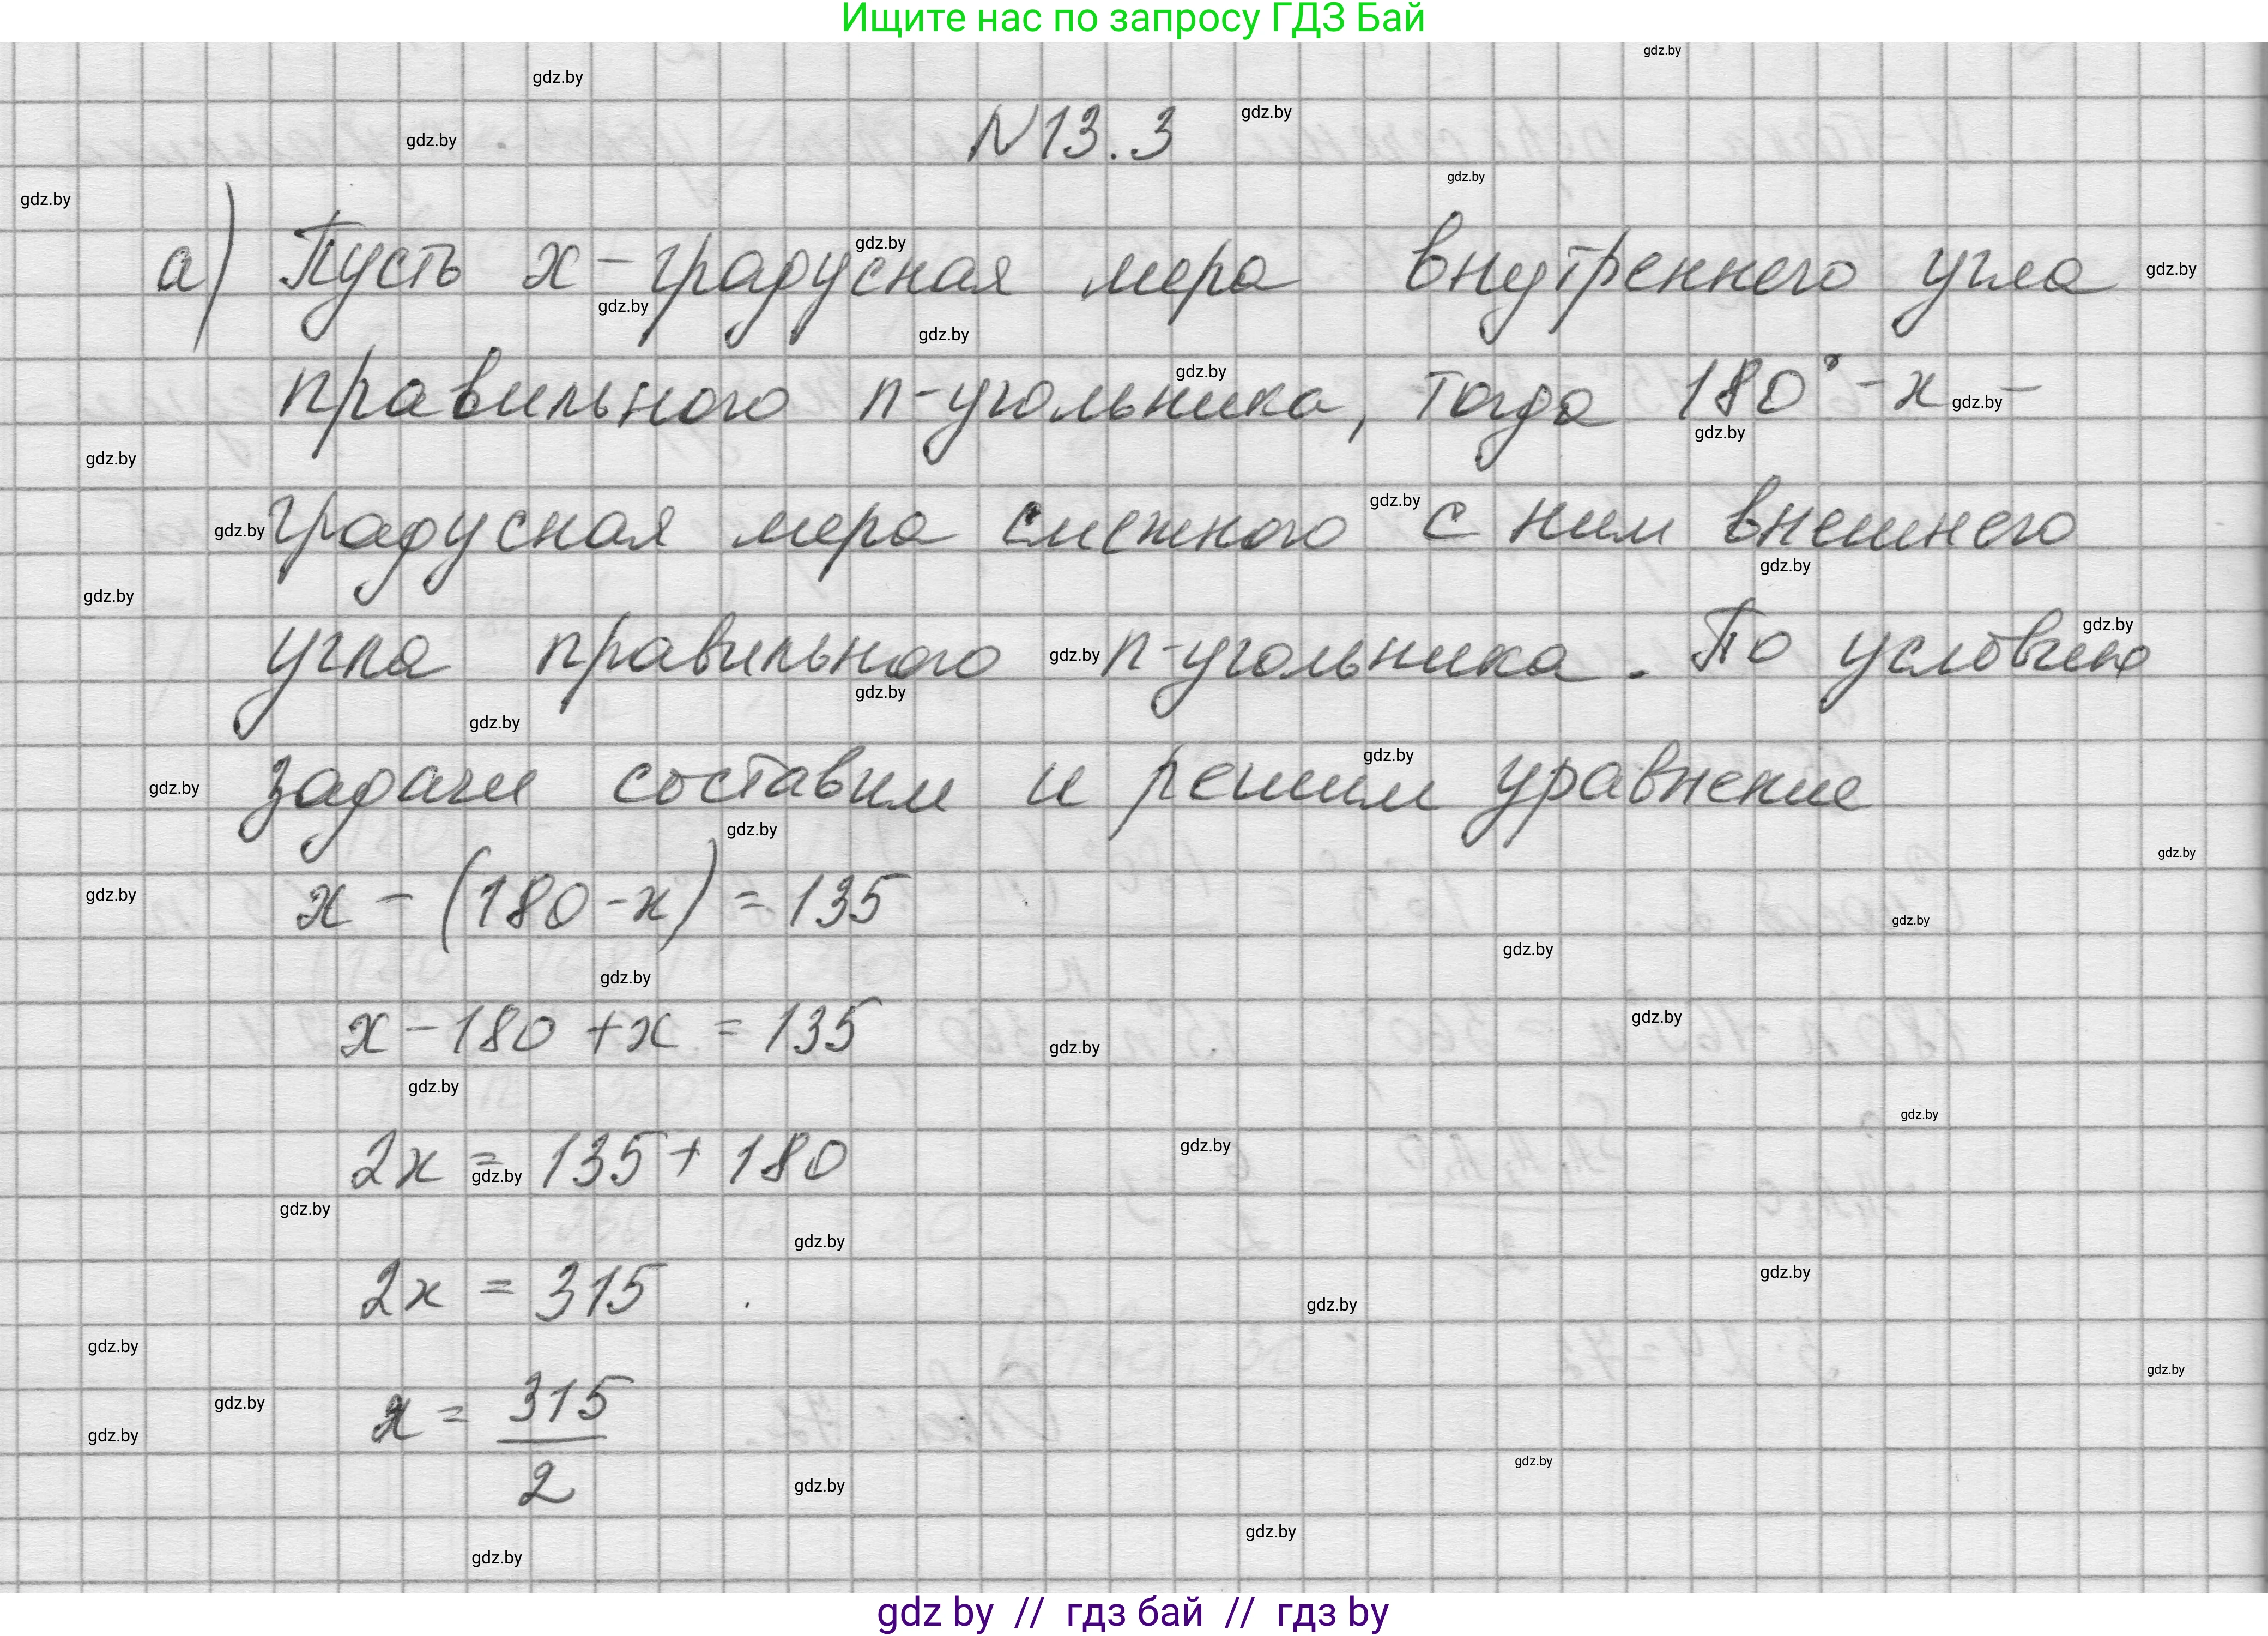 Ищите нас по запросу ГДЗ Бай
N13.3
а) Пусть x - градусная мера внутреннего угла
правильного n-угольника, тогда 180° - x -
градусная мера смежного с ним внешнего
угла правильного n-угольника. По условию
задачи составим и решим уравнение
x - (180 - x) = 135
x - 180 + x = 135
2x = 135 + 180
2x = 315
x = 315/2
gdz by // гдз бай // гдз by